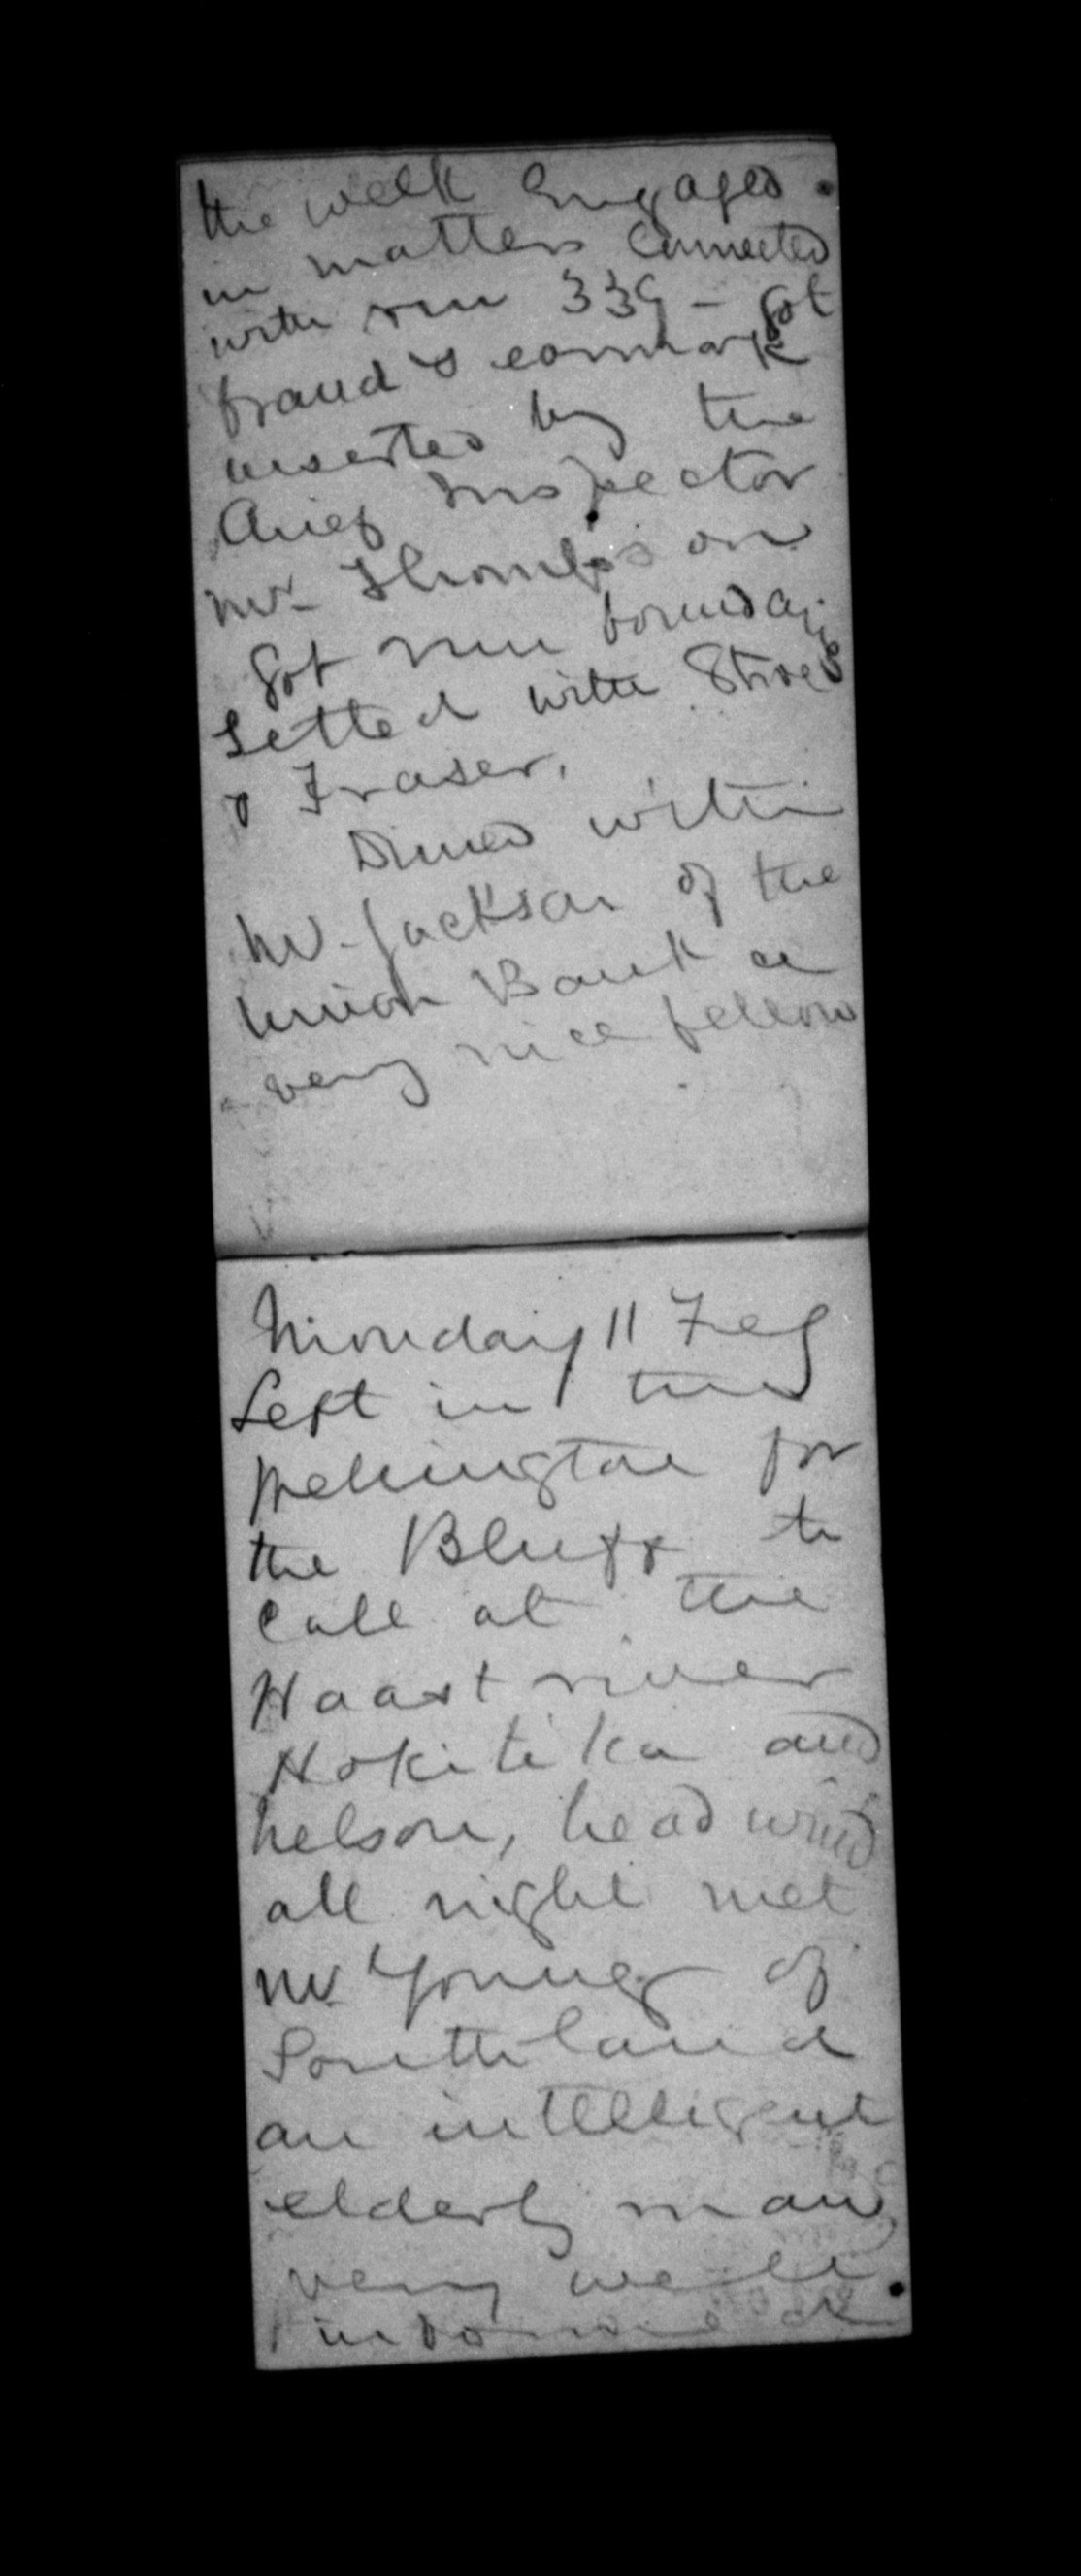 the week Engaged
in matters connected
with run 339 - got
brand & earmark
inserted by the
Chief Inspector
Mr Thompson
Got run boundaries
Settled with
& Fraser,
Dined with
Mr Jackson of the
Union Bank a
very nice fellow
Monday 11 Feb
Left in the
Wellington for
the Bluff to
Call at the
Haast river
Hokitika and
Nelson, head wind
all night met
Mr Young of
Southland
an intelligent
elderly man,
very well
informed